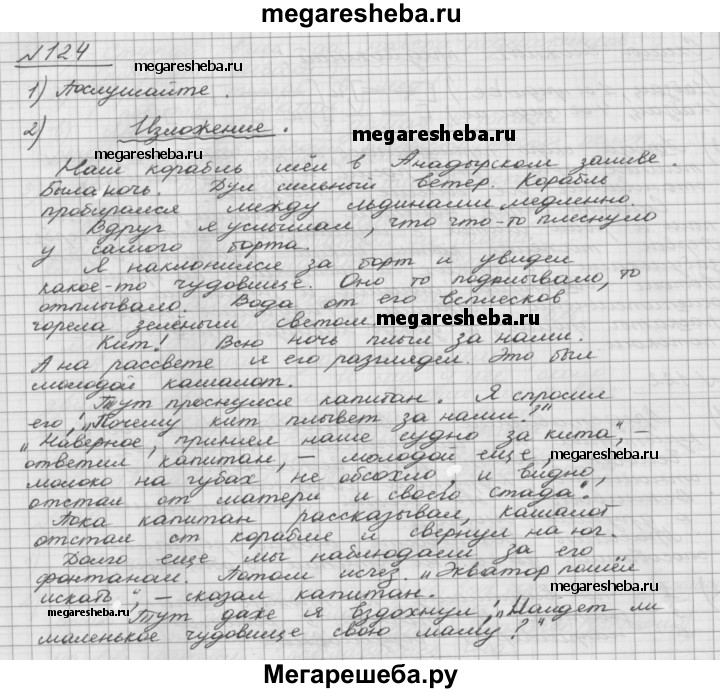 megaresheba.ru
№124
megaresheba.ru
1) Послушайте.
2) Изложение.
megaresheba.ru
Наш корабль шёл в Анадырском заливе.
megaresheba.ru
Была ночь. Дул сильный ветер. Корабль
megaresheba.ru
пробирался между льдинами медленно.
Вдруг я услышал, что что-то плеснуло
у самого борта.
Я наклонился за борт и увидел
какое-то чудовище. Оно то подплывало, то
отплывало. Вода от его всплесков
горела зелёным светом.
megaresheba.ru
Кит! Всю ночь плыл за нами.
А на рассвете я его разглядел. Это был
молодой кашалот.
Тут проснулся капитан. Я спросил
его: „Почему кит плывет за нами?"
„Наверное, принял наше судно за кита", –
ответил капитан, – молодой еще,
молоко на губах не обсохло, и видно,
отстал от матери и своего стада."
Пока капитан рассказывал, кашалот
отстал от корабля и свернул на юг.
Долго еще мы наблюдали за его
фонтаном. Потом исчез. „Экватор пошёл
megaresheba.ru
искать", – сказал капитан.
megaresheba.ru
Тут даже я вздохнул: „Найдет ли
маленькое чудовище свою маму?"
Мегарешеба.ру